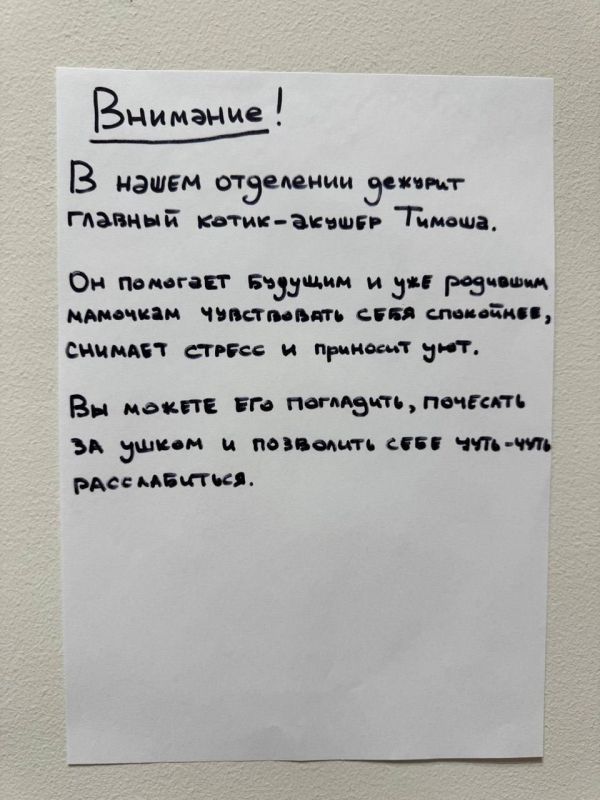 Внимание!
В нашем отделении дежурит
главный котик-акушер Тимоша.
Он помогает будущим и уже родившим
мамочкам чувствовать себя спокойнее,
снимает стресс и приносит уют.
Вы можете его погладить, почесать
за ушком и позволить себе чуть-чуть
расслабиться.